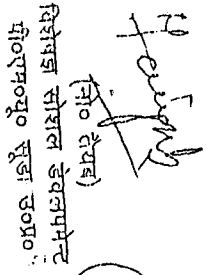 (मो० तैयब)
विशेषज्ञ सोशल डेवलपमेन्ट
पी०एम०यू० सूडा उ०प्र०